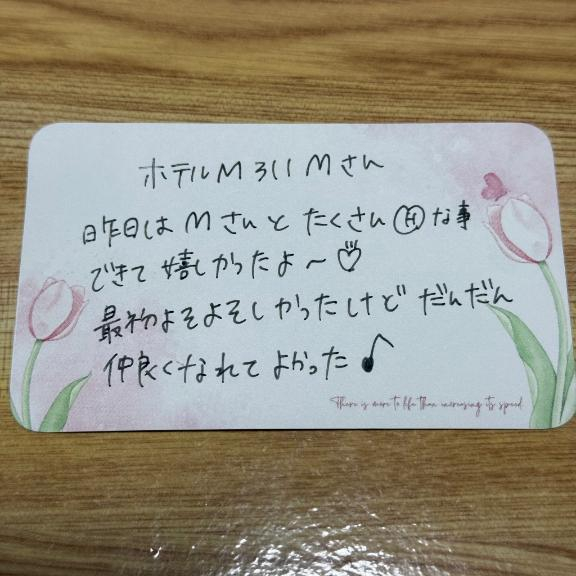 ホテルM 311 Mさん
昨日は Mさんと たくさんⒽな事
できて 嬉しかったよ～♡
最初よそよそしかったけど だんだん
仲良くなれて よかった♪
There is more to life than increasing its speed.